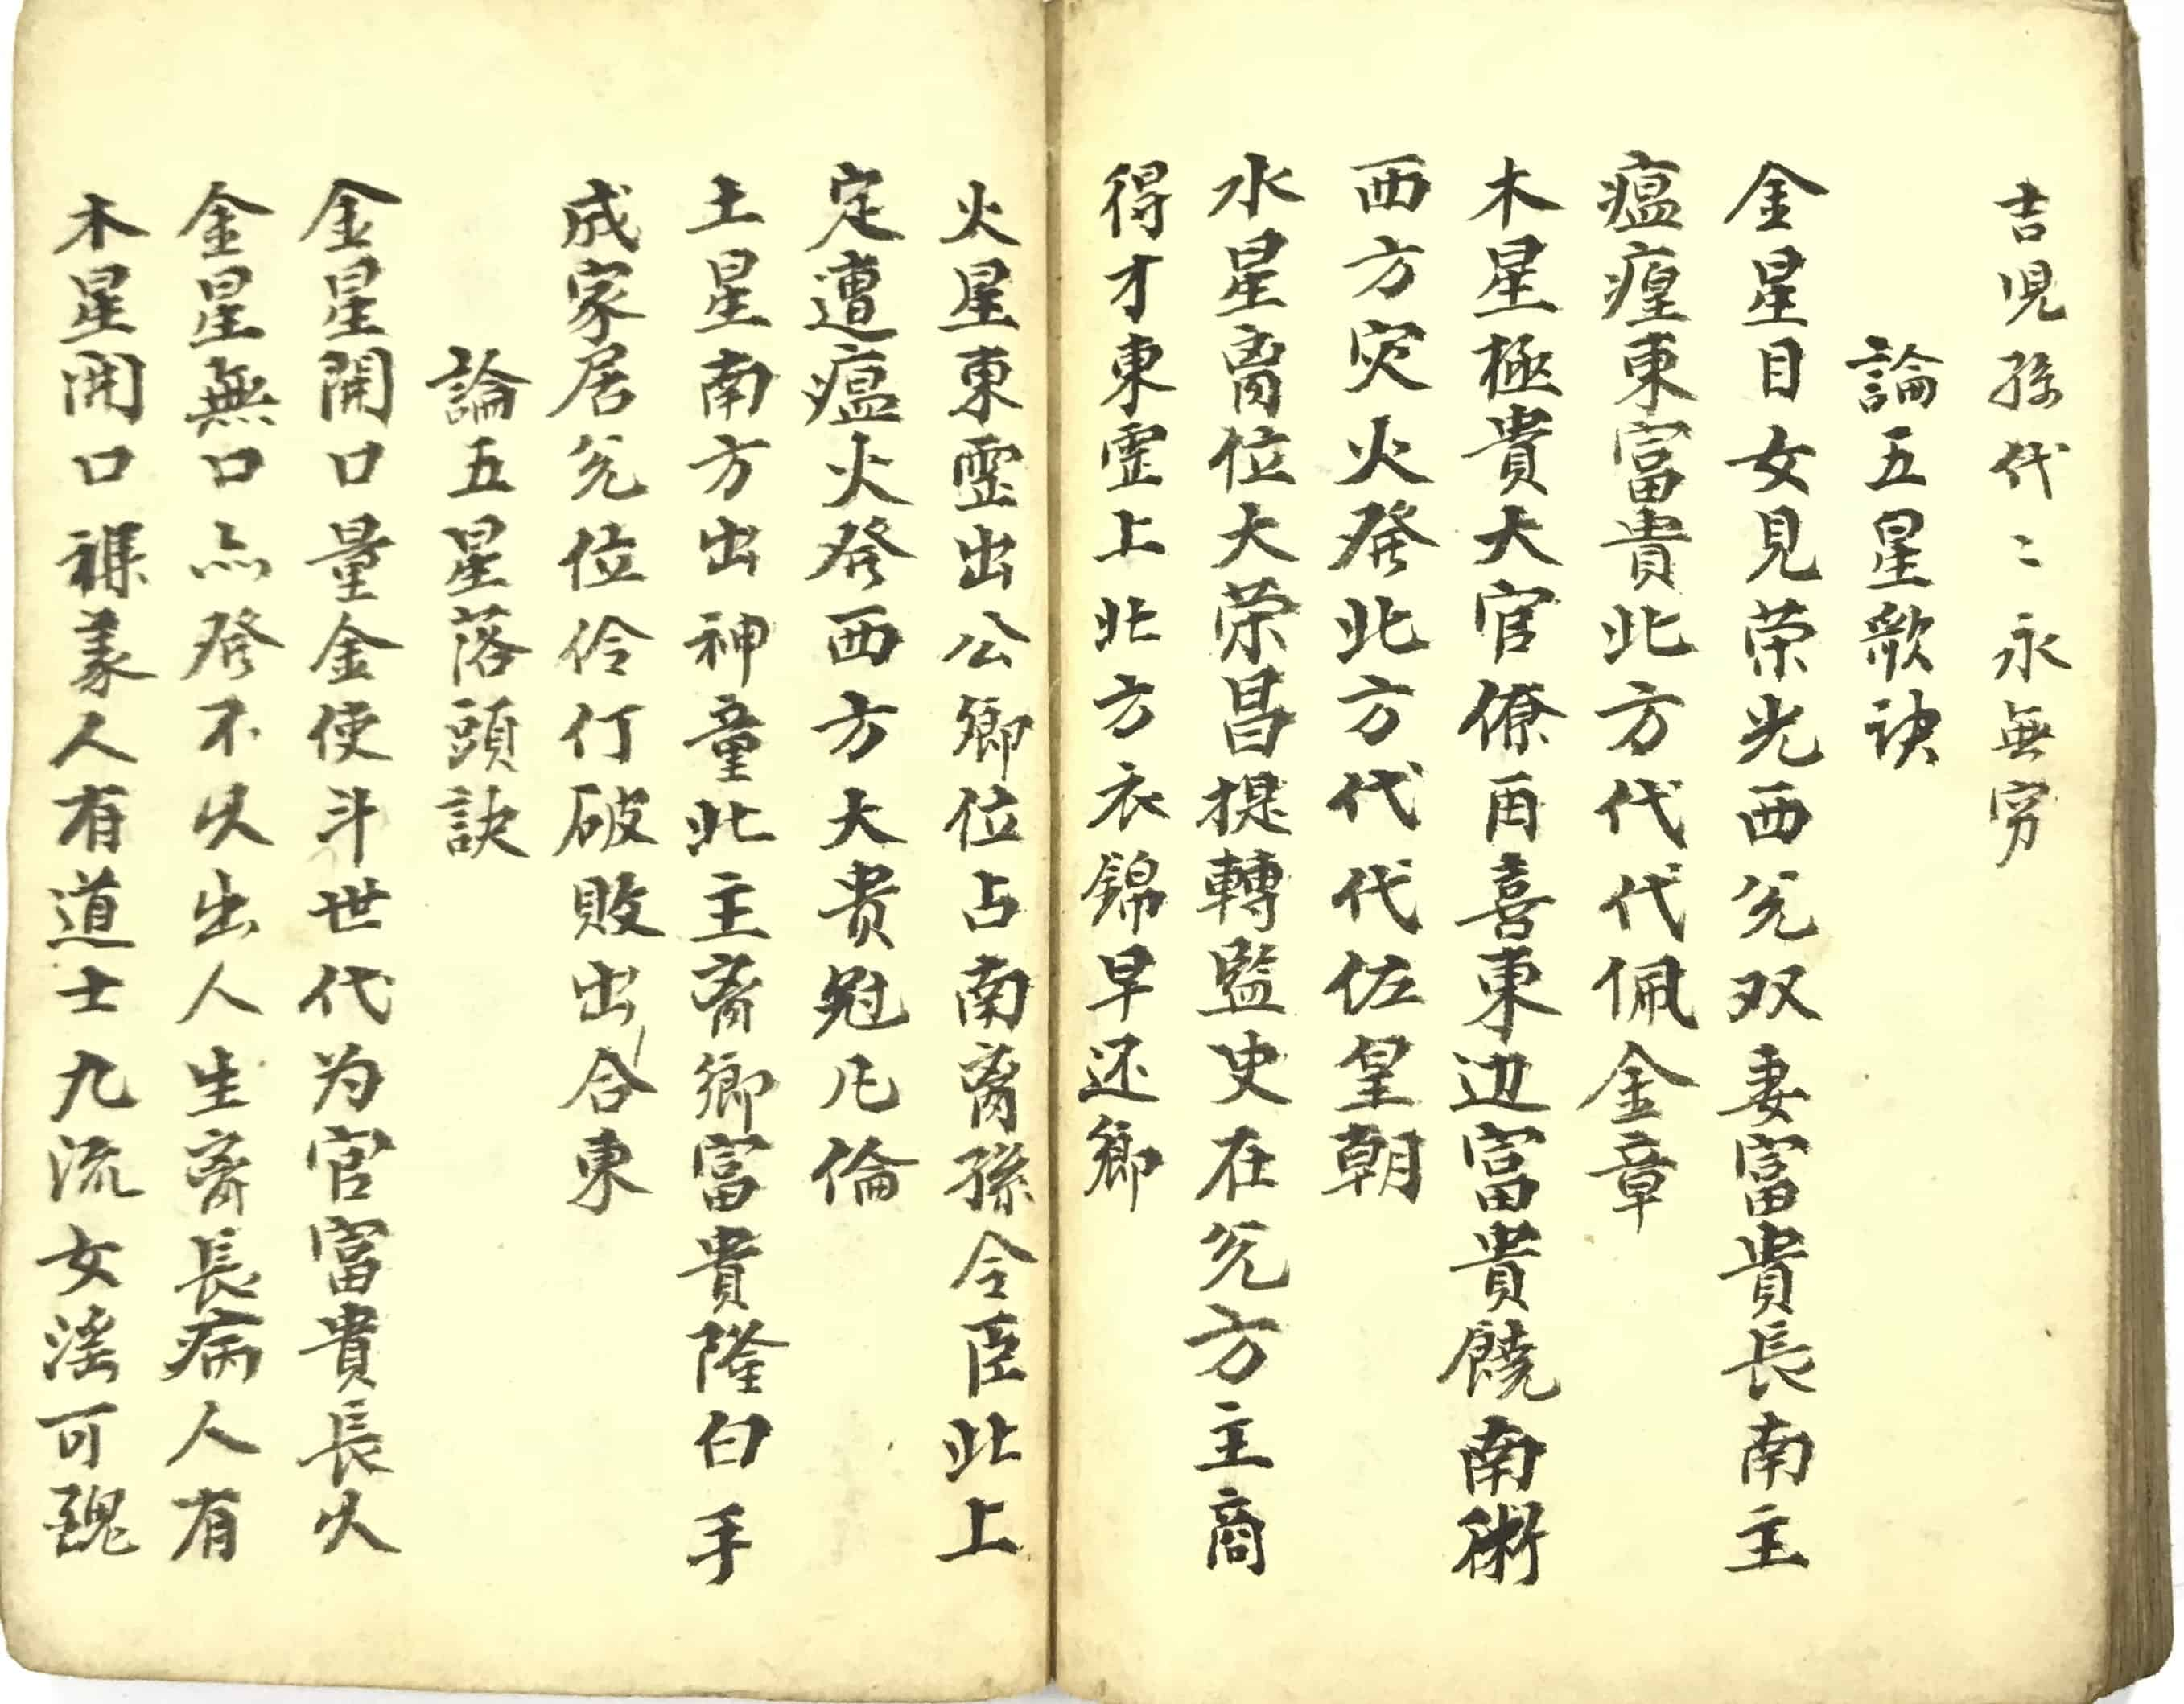 吉児孫代〻永無穷
論五星歌訣
金星目女見荣光西兊双妻富貴長南主
瘟㾮東富貴北方代代佩金章
木星極貴大官僚酉喜東边富貴饒南術
西方灾火發北方代代佐皇朝
水星离位大荣昌提轉監史在兊方主商
得才東霊上北方衣錦早还鄉
火星東霊出公卿位占南离孫令臣北上
定遭瘟火發西方大贵冠凡倫
土星南方出神童北主离鄉富貴隆白手
成家居兊位伶仃破敗出合東
論五星落頭訣
金星開口量金使斗世代为官富貴長久
金星無口亦發不久出人生离長病人有
木星開口人有道士九流女淫可醜